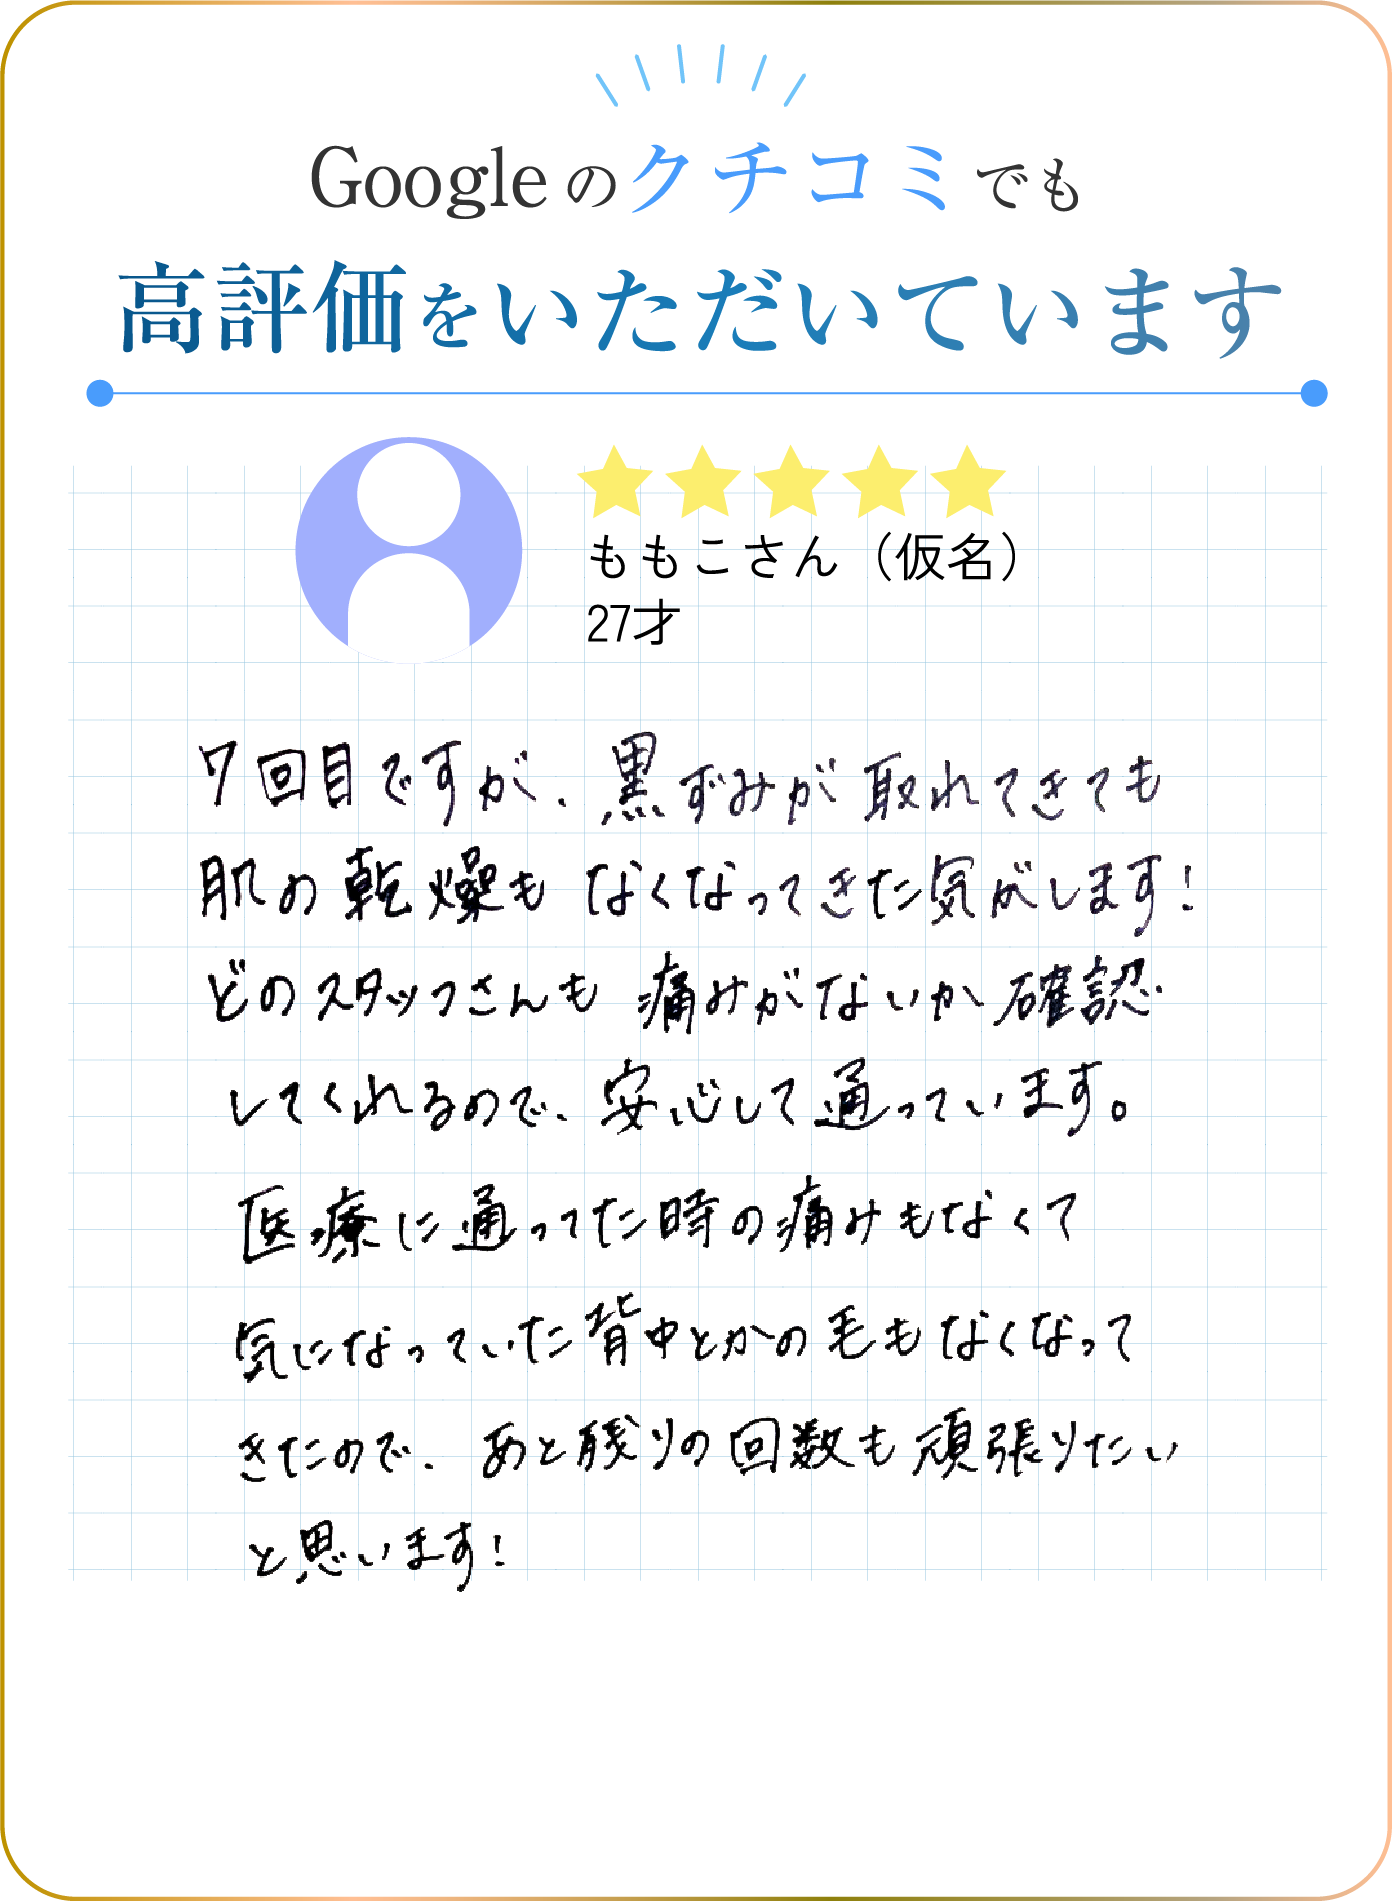 Googleのクチコミでも
高評価をいただいています
ももこさん（仮名）
27才
7回目ですが、黒ずみが取れてきても
肌の乾燥もなくなってきた気がします！
どのスタッフさんも痛みがないか確認
してくれるので、安心して通っています。
医療に通ってた時の痛みもなくて
気になっていた背中とかの毛もなくなって
きたので、あと残りの回数も頑張りたい
と思います！